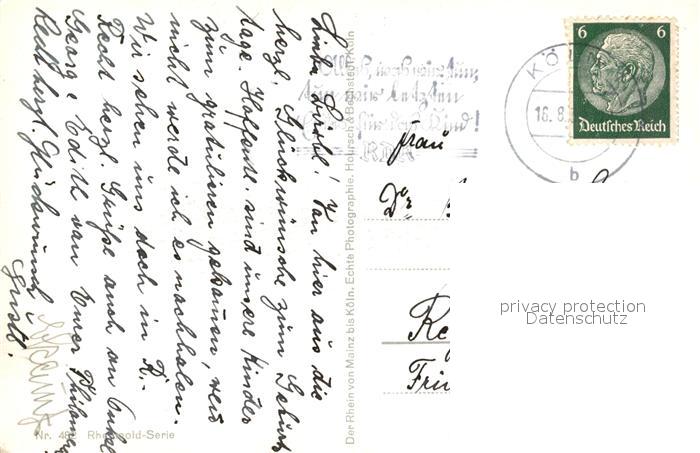 Liebe Liesel! Von hier aus die
herzl. Glückwünsche zum Geburts
tage. Hoffentl. sind unsere Kinder
zum gratulieren gekommen, weis
nicht werde ich es nachholen.
Wir sehen uns doch in K.-
Recht herzl. Grüße auch an Onkel
Georg u. Edith von Eurer
Recht herzl. Glückwunsch
Nr. 48 Rheingold-Serie
Der Rhein von Mainz bis Köln. Echte Photographie. Hoursch & Bechstedt, Köln
KÖL
16.8.
b
6 6
Deutsches Reich
Frau
Dr.
privacy protection
Datenschutz